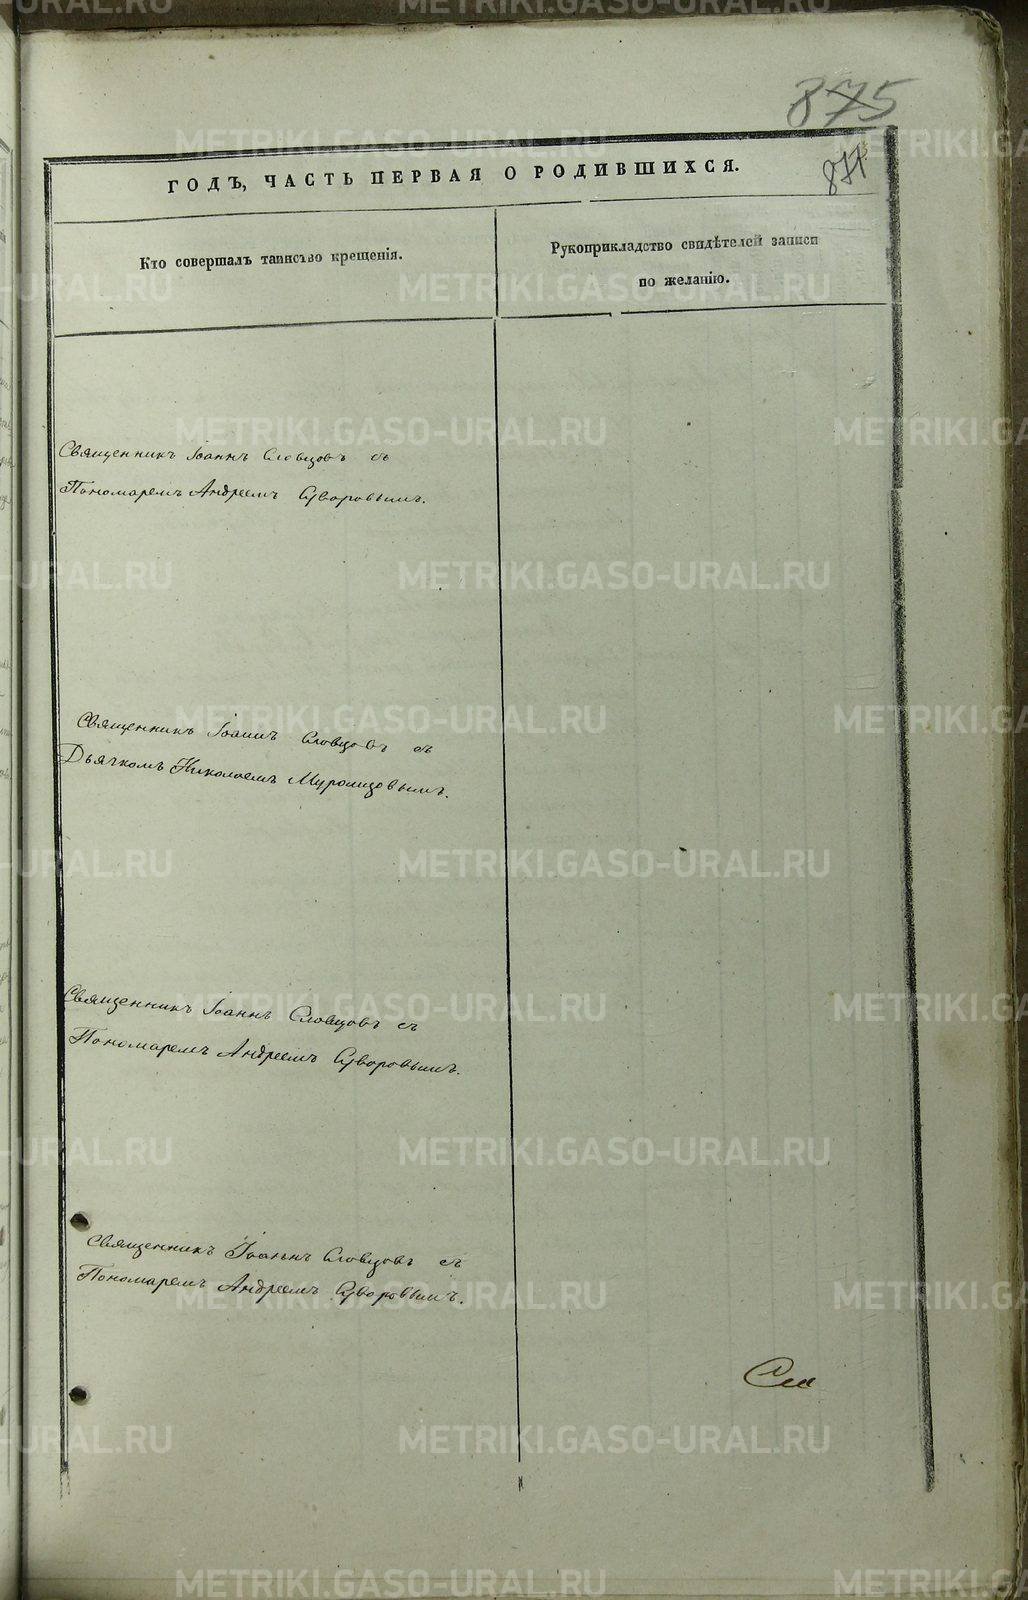 875
871
ГОДЪ, ЧАСТЬ ПЕРВАЯ О РОДИВШИХСЯ.
Кто совершалъ таинство крещенія.
Рукоприкладство свидѣтелей записи
по желанію.
Священникъ Іоаннъ Словцовъ съ
Пономаремъ Андреемъ Суворовымъ.
Священникъ Іоаннъ Словцовъ съ
Дьячкомъ Николаемъ Муромцовымъ.
Священникъ Іоаннъ Словцовъ съ
Пономаремъ Андреемъ Суворовымъ.
Священникъ Іоаннъ Словцовъ съ
Пономаремъ Андреемъ Суворовымъ.
METRIKI.GASO-URAL.RU